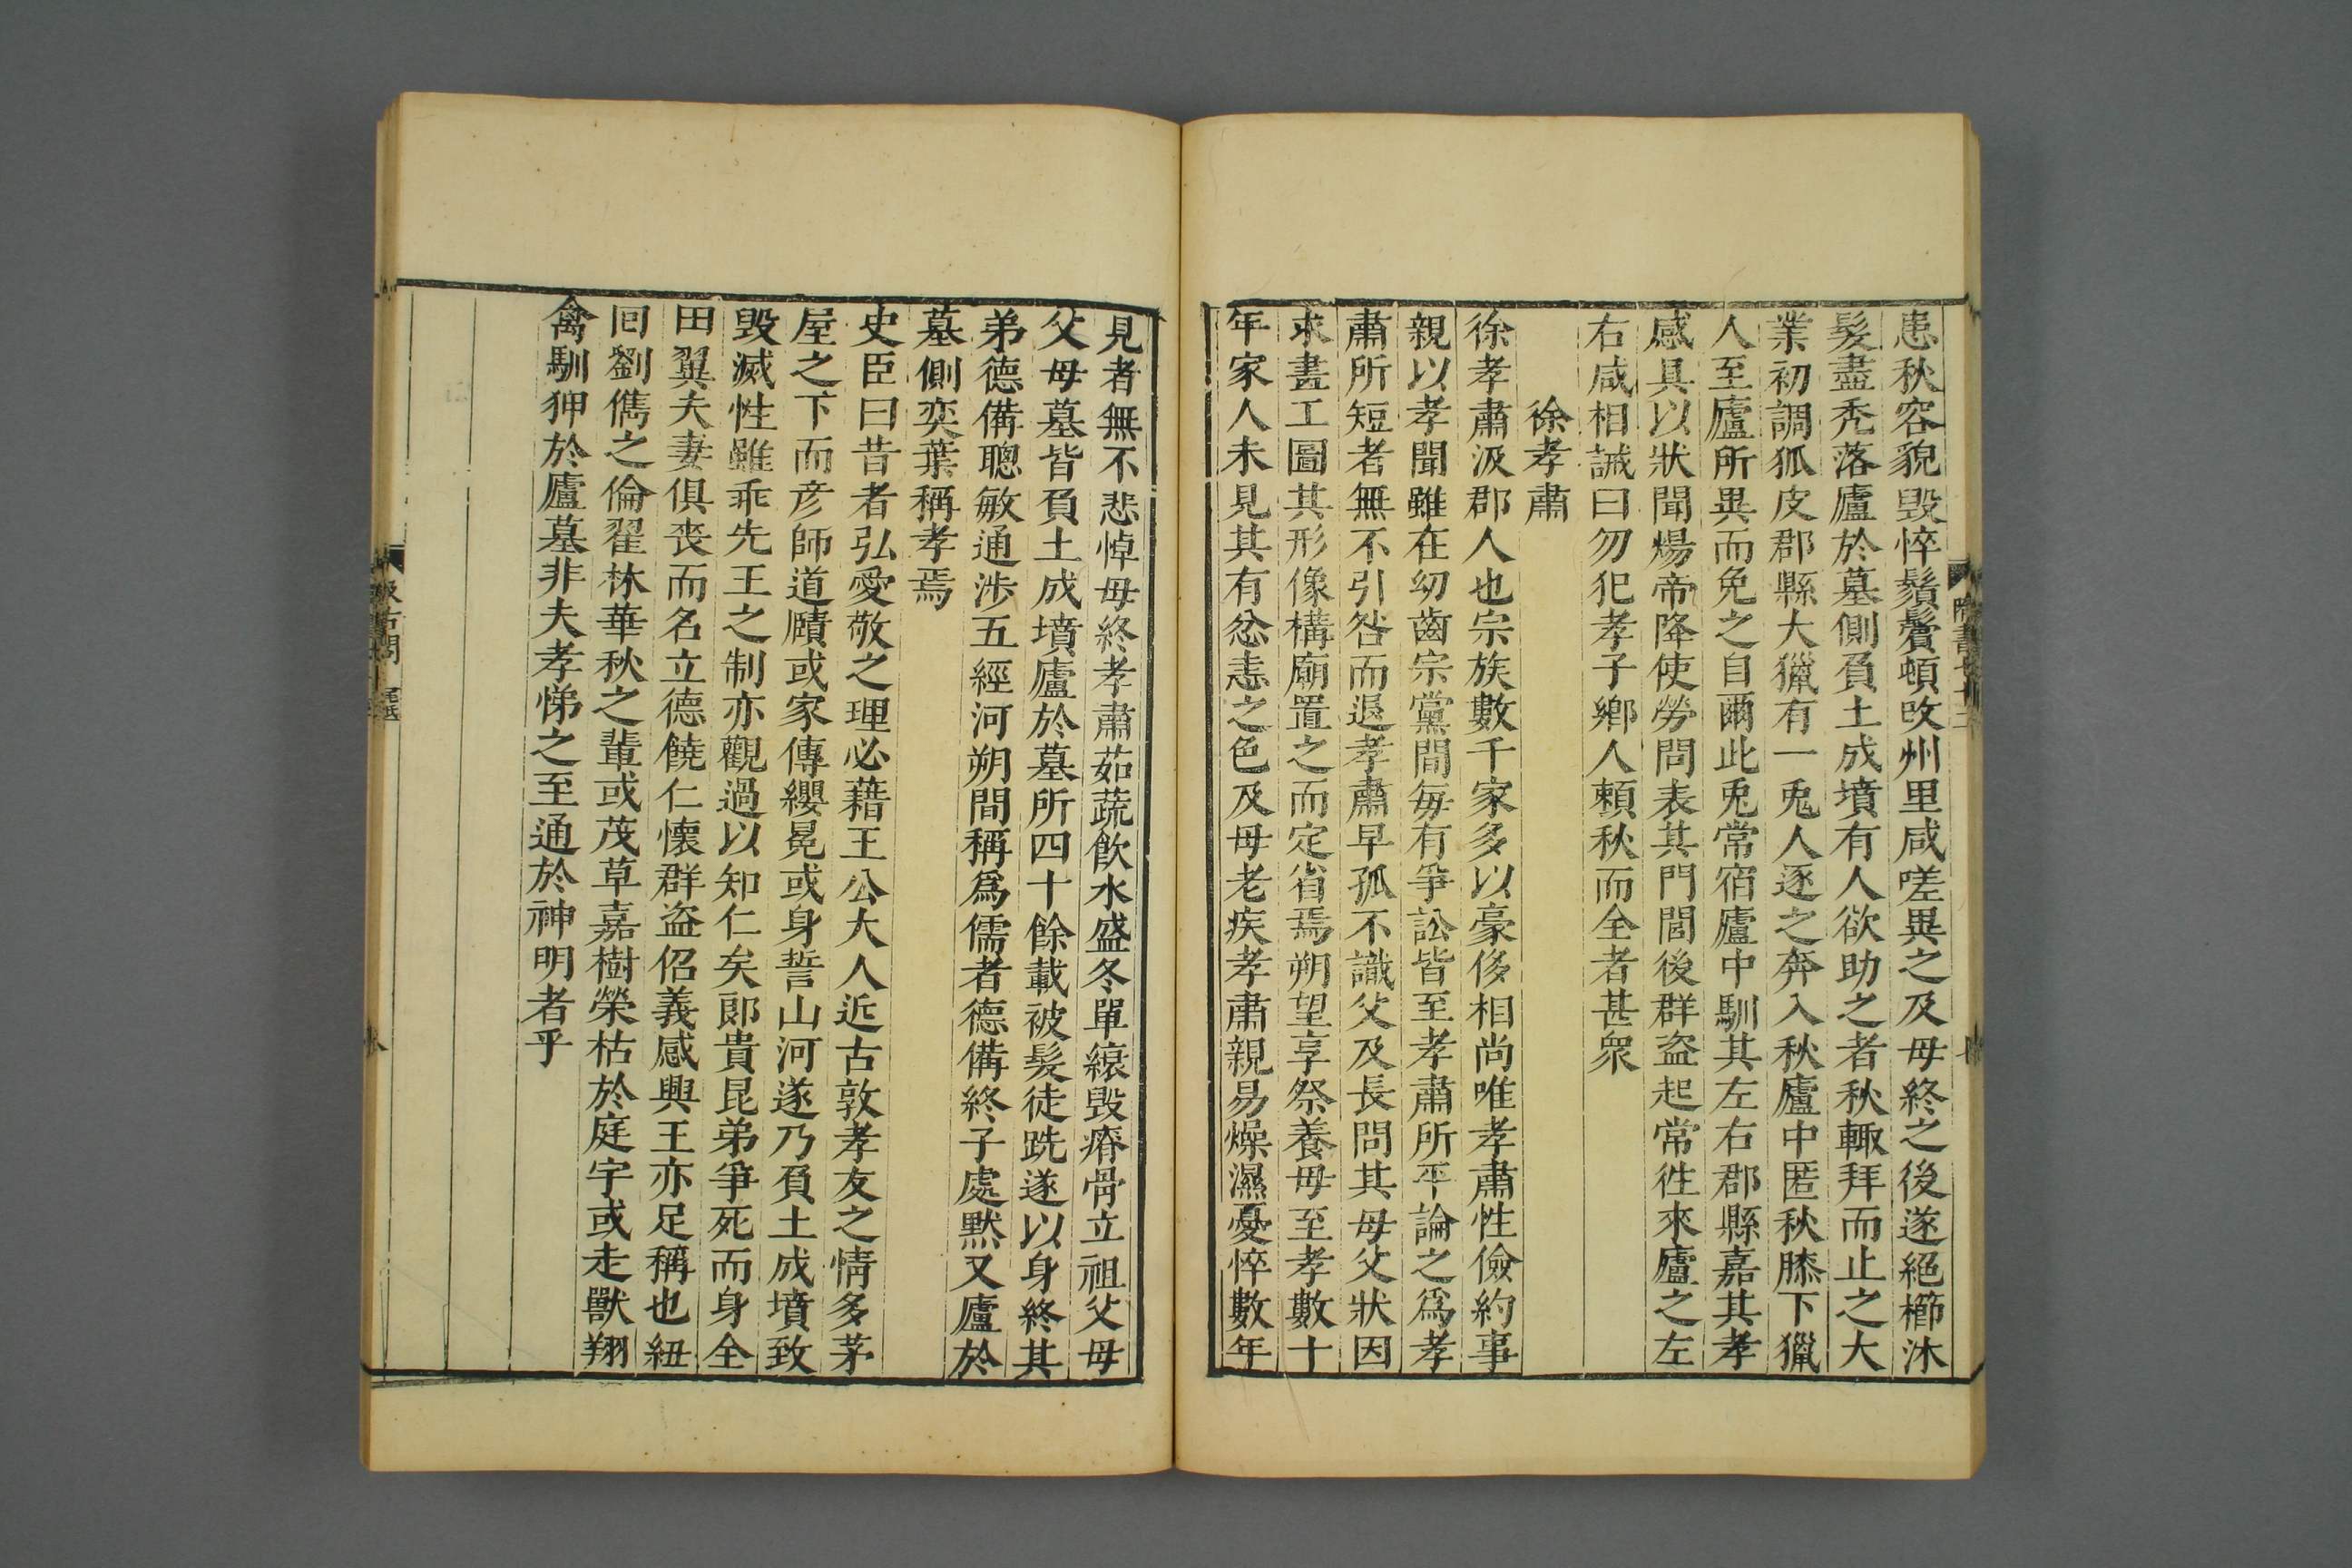 患秋容貌毁悴鬚鬢頓改州里咸嗟異之及母終之後遂絕櫛沐
髮盡禿落廬於墓側負土成墳有人欲助之者秋輙拜而止之大
業初調狐皮郡縣大獵有一兎人逐之奔入秋廬中匿秋膝下獵
人至廬所異而免之自爾此兎常宿廬中馴其左右郡縣嘉其孝
感具以狀聞煬帝降使勞問表其門閭後群盜起常徃來廬之左
右咸相誡曰勿犯孝子鄉人賴秋而全者甚衆
徐孝肅
徐孝肅汲郡人也宗族數千家多以豪侈相尚唯孝肅性儉約事
親以孝聞雖在幼齒宗黨間每有爭訟皆至孝肅所平論之爲孝
肅所短者無不引咎而退孝肅早孤不識父及長問其母父狀因
求畫工圖其形像構廟置之而定省焉朔望享祭養母至孝數十
年家人未見其有忿恚之色及母老疾孝肅親易燥濕憂悴數年
見者無不悲悼母終孝肅茹蔬飲水盛冬單縗毁瘠骨立祖父母
父母墓皆負土成墳廬於墓所四十餘載被髮徒跣遂以身終其
弟德備聰敏通涉五經河朔間稱爲儒者德備終子處默又廬於
墓側奕葉稱孝焉
史臣曰昔者弘愛敬之理必藉王公大人近古敦孝友之情多茅
屋之下而彥師道賾或家傳纓冕或身誓山河遂乃負土成墳致
毁滅性雖乖先王之制亦觀過以知仁矣郎貴昆弟爭死而身全
田翼夫妻俱喪而名立德饒仁懷群盜侶義感興王亦足稱也紐
回劉儁之倫翟林華秋之輩或茂草嘉樹榮枯於庭宇或走獸翔
禽馴狎於廬墓非夫孝悌之至通於神明者乎